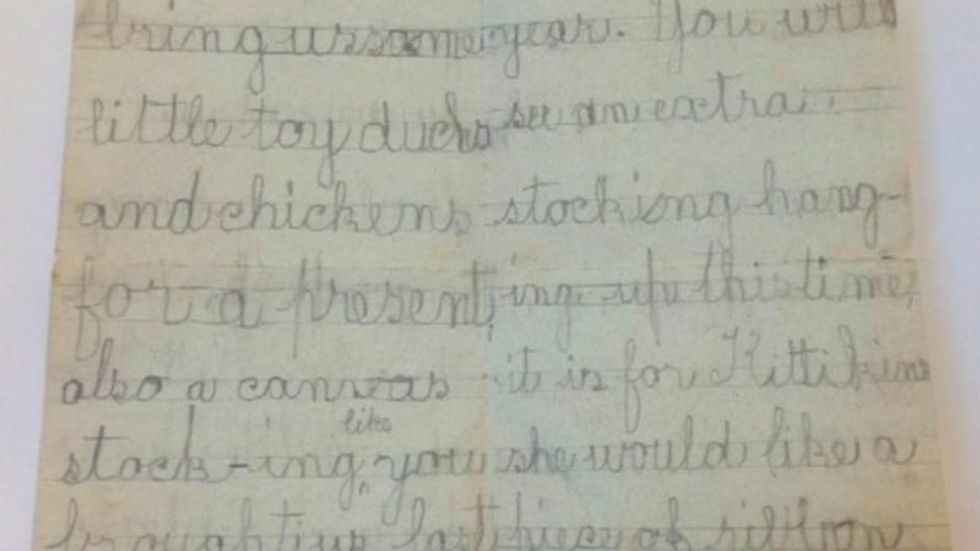 bring us some
little toy ducks
and chickens
for a present,
also a canvas
stock-ing, like you
brought us last
year. You will
see an extra
stocking hang-
ing up this time,
it is for Kittikins
she would like a
piece of ribbon